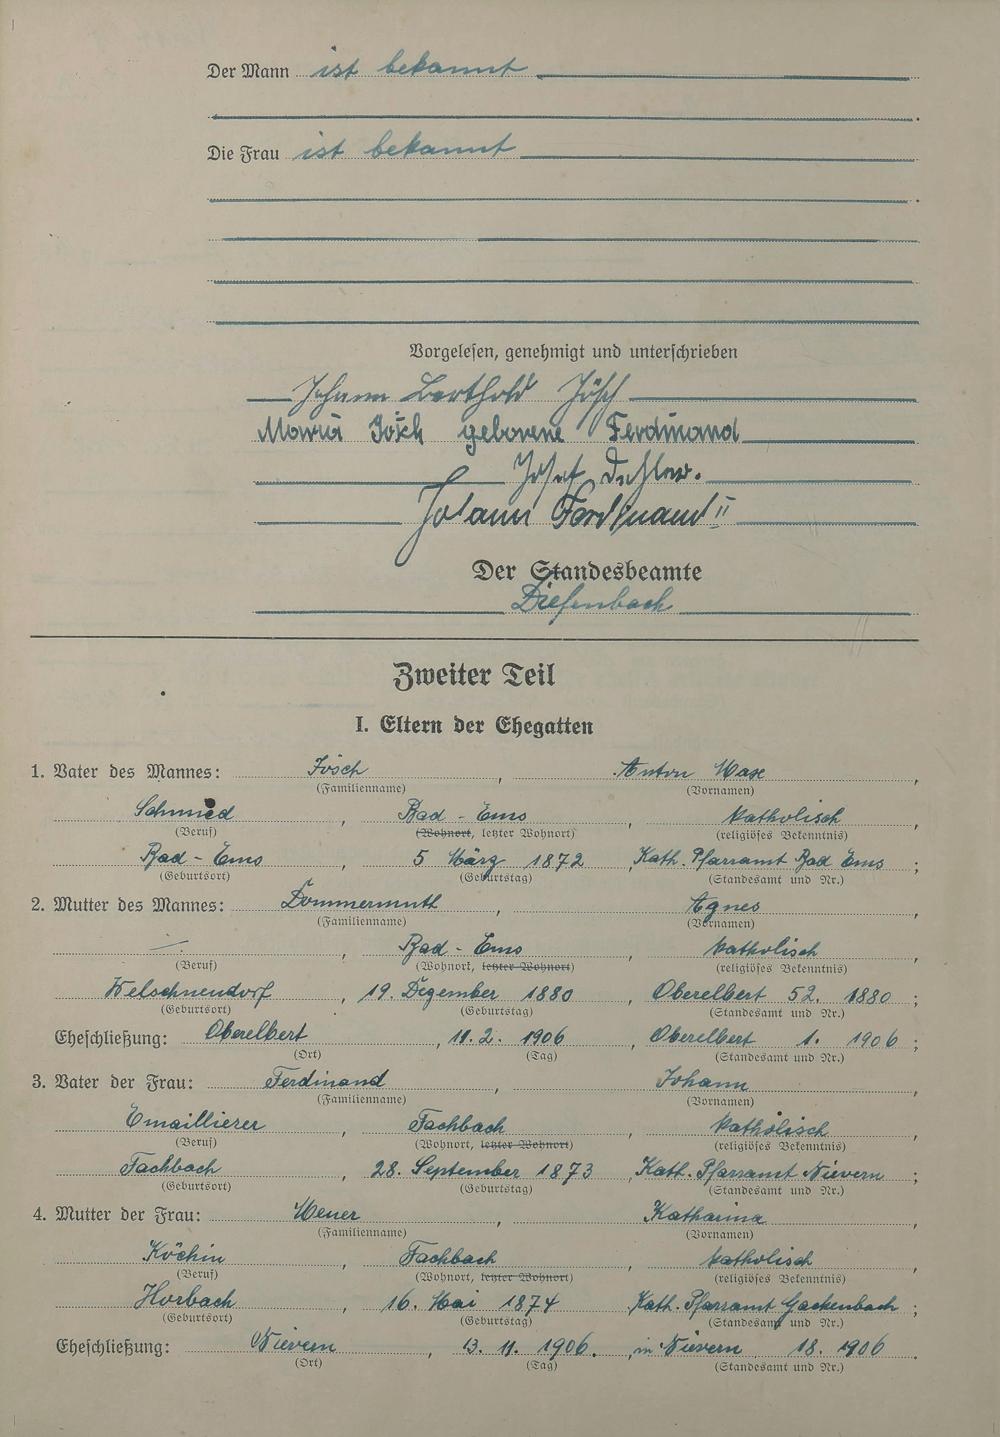 Der Mann ist bekannt
Die Frau ist bekannt
Vorgelesen, genehmigt und unterschrieben
Johann Berthold Jösch
Maria Jösch geborene Ferdinand
Josef
Johann Ferdinand II
Der Standesbeamte
Diefenbach
Zweiter Teil
I. Eltern der Ehegatten
1. Vater des Mannes: Jösch, Anton Max,
(Familienname) (Vornamen)
Schmied, Bad-Ems, katholisch
(Beruf) (Wohnort, letzter Wohnort) (religiöses Bekenntnis)
Bad-Ems, 5 März 1872, Kath. Pfarramt Bad Ems;
(Geburtsort) (Geburtstag) (Standesamt und Nr.)
2. Mutter des Mannes: Dommermuth, Agnes,
(Familienname) (Vornamen)
—, Bad-Ems, katholisch,
(Beruf) (Wohnort, letzter Wohnort) (religiöses Bekenntnis)
Welschneudorf, 19. Dezember 1880, Oberelbert 52. 1880;
(Geburtsort) (Geburtstag) (Standesamt und Nr.)
Eheschließung: Oberelbert, 11. 2. 1906, Oberelbert 1. 1906;
(Ort) (Tag) (Standesamt und Nr.)
3. Vater der Frau: Ferdinand, Johann,
(Familienname) (Vornamen)
Emaillierer, Fachbach, katholisch,
(Beruf) (Wohnort, letzter Wohnort) (religiöses Bekenntnis)
Fachbach, 28. September 1873, Kath. Pfarramt Nievern;
(Geburtsort) (Geburtstag) (Standesamt und Nr.)
4. Mutter der Frau: Katharina,
(Familienname) (Vornamen)
Köchin, Fachbach, katholisch,
(Beruf) (Wohnort, letzter Wohnort) (religiöses Bekenntnis)
Horbach, 16. Mai 1874, Kath. Pfarramt Gackenbach;
(Geburtsort) (Geburtstag) (Standesamt und Nr.)
Eheschließung: Nievern, 13. 11. 1906., in Nievern 18. 1906.
(Ort) (Tag) (Standesamt und Nr.)